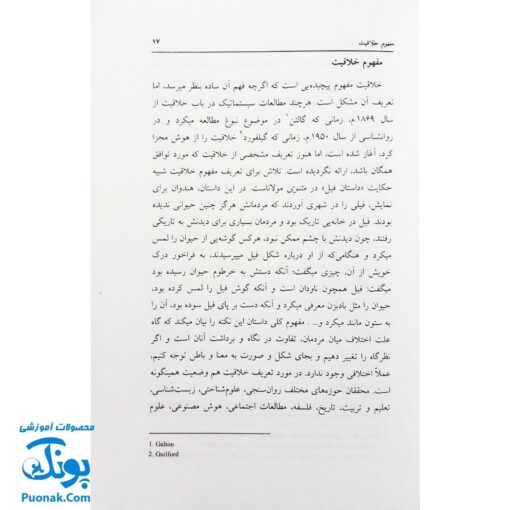 مفهوم خلاقیت ۱۷
مفهوم خلاقیت
خلاقیت مفهوم پیچیده‌یی است که اگرچه فهم آن ساده بنظر میرسد، اما
تعریف آن مشکل است. هرچند مطالعات سیستماتیک در باب خلاقیت از
سال ۱۸۶۹م. زمانی که گالتن¹ در موضوع نبوغ مطالعه میکرد و در
روانشناسی از سال ۱۹۵۰م. زمانی که گیلفورد² خلاقیت را از هوش مجزا
کرد، آغاز شده است، اما هنوز تعریف مشخصی از خلاقیت که مورد توافق
همگان باشد، ارائه نگردیده است. تلاش برای تعریف مفهوم خلاقیت شبیه
حکایت «داستان فیل» در مثنوی مولاناست. در این داستان، هندوان برای
نمایش، فیلی را در شهری آوردند که مردمانش هرگز چنین حیوانی ندیده
بودند. فیل در خانه‌یی تاریک بود و مردمان بسیاری برای دیدنش به تاریکی
رفتند، چون دیدنش با چشم ممکن نبود، هرکس گوشه‌یی از حیوان را لمس
میکرد و هنگامی‌که از او درباره شکل فیل میپرسیدند، به فراخور درک
خویش از آن، چیزی میگفت؛ آنکه دستش به خرطوم حیوان رسیده بود
میگفت: فیل همچون ناودان است و آنکه گوش فیل را لمس کرده بود،
حیوان را مثل بادبزن معرفی میکرد و آنکه دست بر پای فیل سوده بود، آن را
به ستون مانند میکرد و... . مفهوم کلی داستان این نکته را بیان میکند که گاه
علت اختلاف میان مردمان، تفاوت در نگاه و برداشت آنان است و اگر
نظرگاه را تغییر دهیم و بجای شکل و صورت به معنا و باطن توجه کنیم،
عملاً اختلافی وجود ندارد. در مورد تعریف خلاقیت هم وضعیت همینگونه
است. محققان حوزه‌های مختلف روان‌سنجی، علوم‌شناختی، زیست‌شناسی،
تعلیم و تربیت، تاریخ، فلسفه، مطالعات اجتماعی، هوش مصنوعی، علوم
1. Galton
2. Guilford
محصولات آموزشی
پونک
Puonak.Com